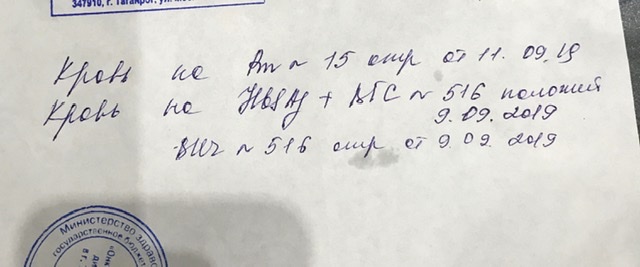 347910, г. Таганрог, ул.
Кровь на Rm № 15 отр от 11.09.19
Кровь на HBsAg + ВГС № 516 положит
9.09.2019
ВИЧ № 516 отр от 9.09.2019
Министерство здрав
государственное бюджет
"Онк